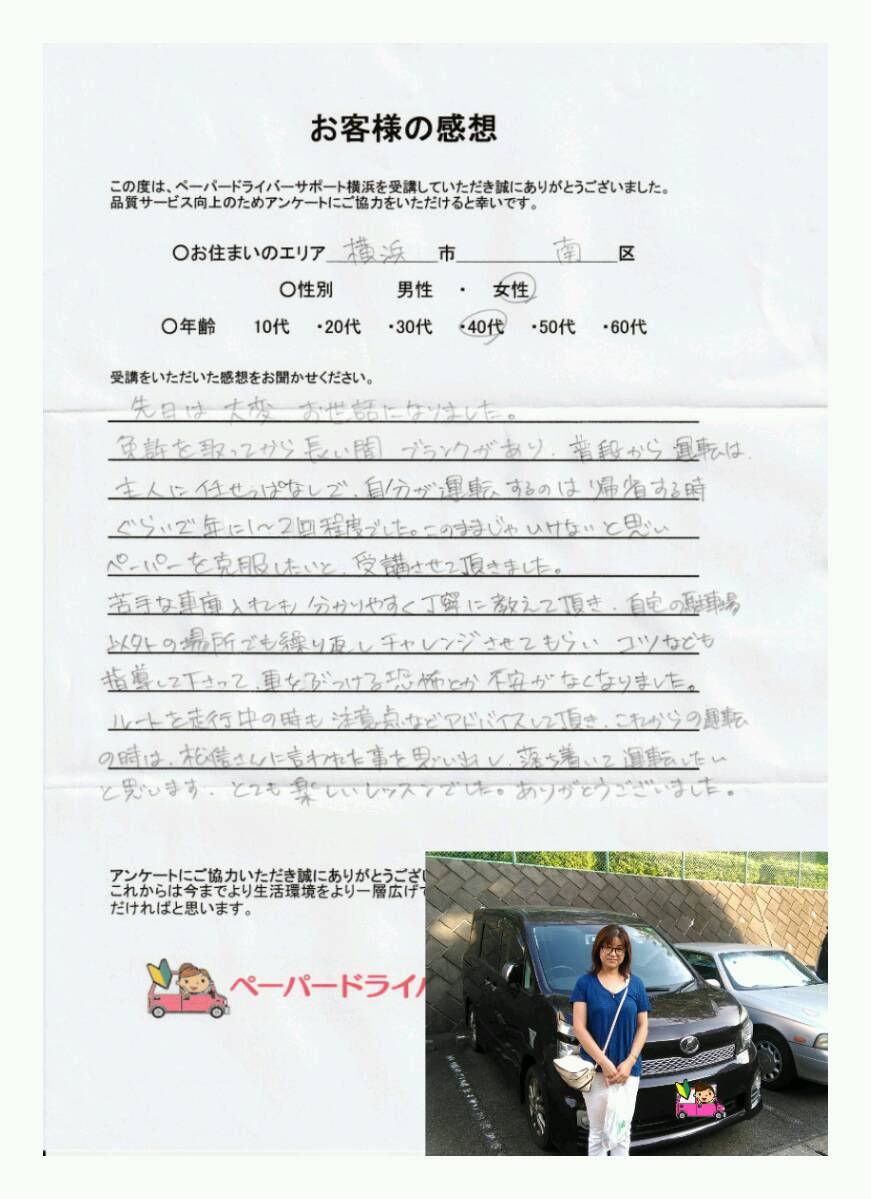 お客様の感想
この度は、ペーパードライバーサポート横浜を受講していただき誠にありがとうございました。
品質サービス向上のためアンケートにご協力をいただけると幸いです。
〇お住まいのエリア 横浜 市 南 区
〇性別 男性 ・ 女性
〇年齢 10代 ・20代 ・30代 ・40代 ・50代 ・60代
受講をいただいた感想をお聞かせください。
先日は 大変 お世話になりました。
免許を取ってから 長い間 ブランクがあり、普段から 運転は、
主人に任せっぱなしで、自分が運転するのは 帰省する時
ぐらいで年に1〜2回程度でした。このままじゃ いけないと思い
ペーパーを克服したいと、受講させて頂きました。
苦手な車庫入れも 分かりやすく丁寧に教えて頂き、自宅の駐車場
以外の場所でも繰り返しチャレンジさせてもらい コツなども
指導して下さって、車をぶつける恐怖とか 不安がなくなりました。
ルートを走行中の時も 注意点などアドバイスして頂き、これからの運転
の時は、松信さんに言われた事を思い出し、落ち着いて 運転したい
と思います。とても 楽しいレッスンでした。ありがとうございました。
アンケートにご協力いただき誠にありがとうござい
これからは今までより生活環境をより一層広げて
だければと思います。
ペーパードライ